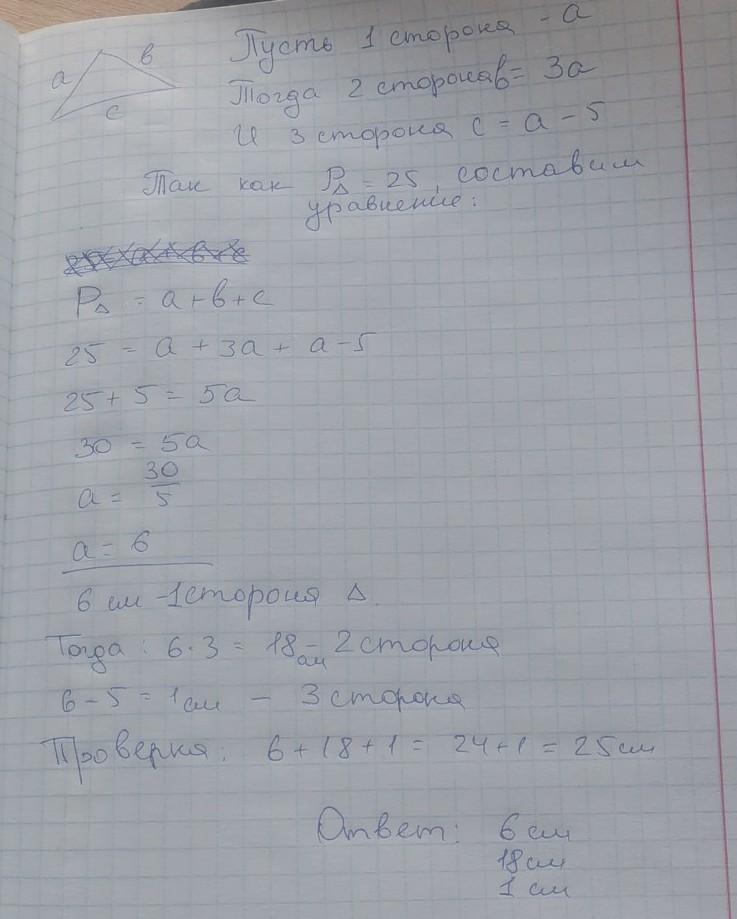 Пусть 1 сторона - a
a
b
c
Тогда 2 сторона b = 3a
И 3 сторона c = a - 5
Так как P∆ = 25, составим
уравнение:
P∆ = a + b + c
25 = a + 3a + a - 5
25 + 5 = 5a
30 = 5a
a = 30/5
a = 6
6 см - 1 сторона ∆.
Тогда: 6 · 3 = 18 см - 2 сторона
6 - 5 = 1 см - 3 сторона
Проверка: 6 + 18 + 1 = 24 + 1 = 25 см
Ответ: 6 см
18 см
1 см